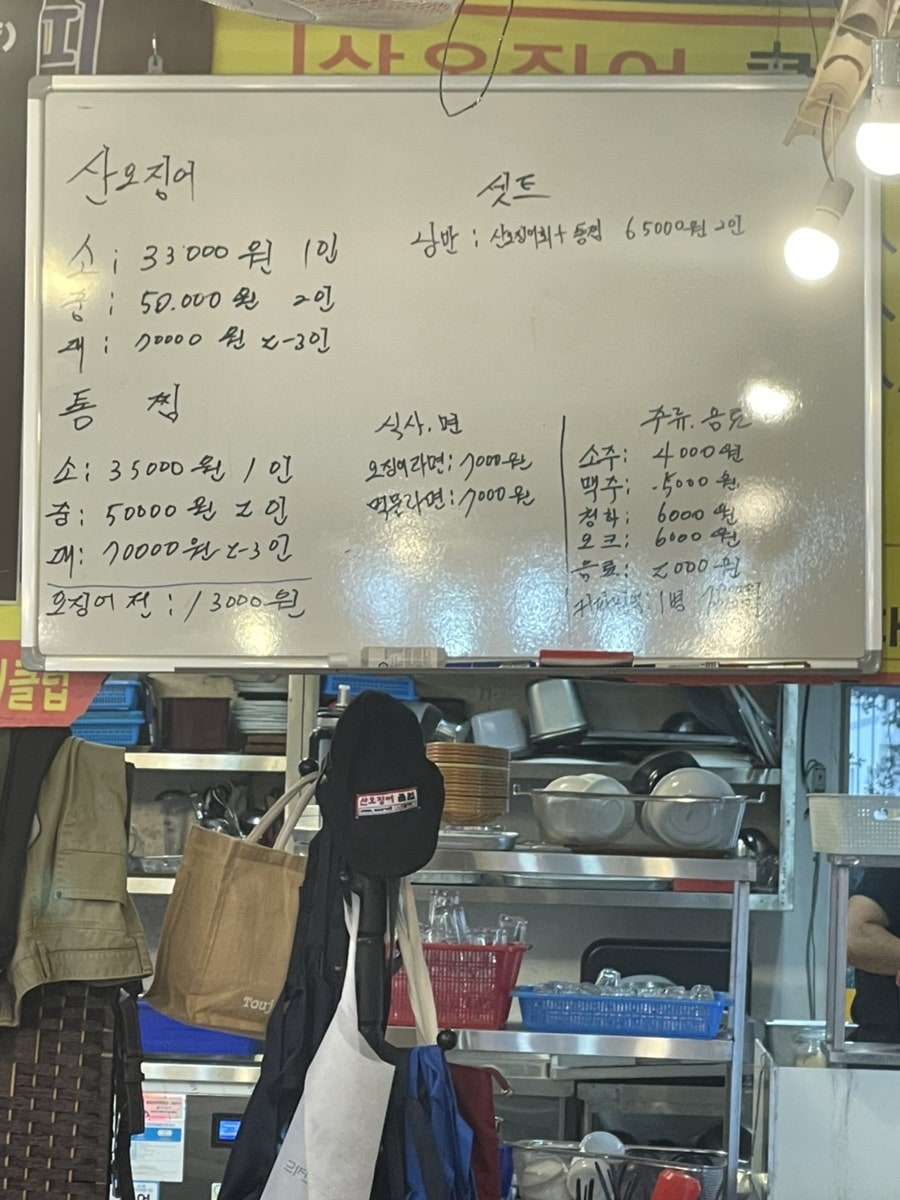 산오징어
산오징어
소: 33000원 1인
중: 50.000원 2인
대: 70000원 2-3인
통 찜
소: 35000원 1인
중: 50000원 2인
대: 70000원 2-3인
오징어전: 13000원
셋트
반: 산오징어회+통찜 65000원 2인
식사.면
오징어라면: 7000원
먹물라면: 7000원
주류.음료
소주: 4000원
맥주: 5000원
청하: 6000원
오크: 6000원
음료: 2000원
1병
클럽
산오징어
Tou